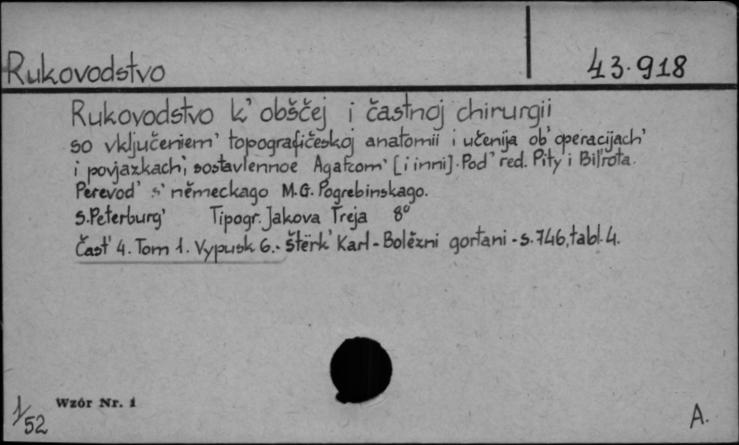 Rukovodstvo
43.918
Rukovodstvo k' obščej i častnoj chirurgii
so vključeniem' topografičeskoj anatomii i učenija ob' operacijach'
i povjazkach', sostavlennoe Agatcom' [i inni]. Pod' red. Pity i Bil'rota.
Perevod' s' německago M.G. Pogrebinskago.
S.Peterburg' Tipogr. Jakova Treja 8°
Čast' 4. Tom 1. Vypusk 6. - Štërk' Karl - Bolězni gortani - s. 746, tabl. 4.
Wzór Nr. 1
1/52
A.